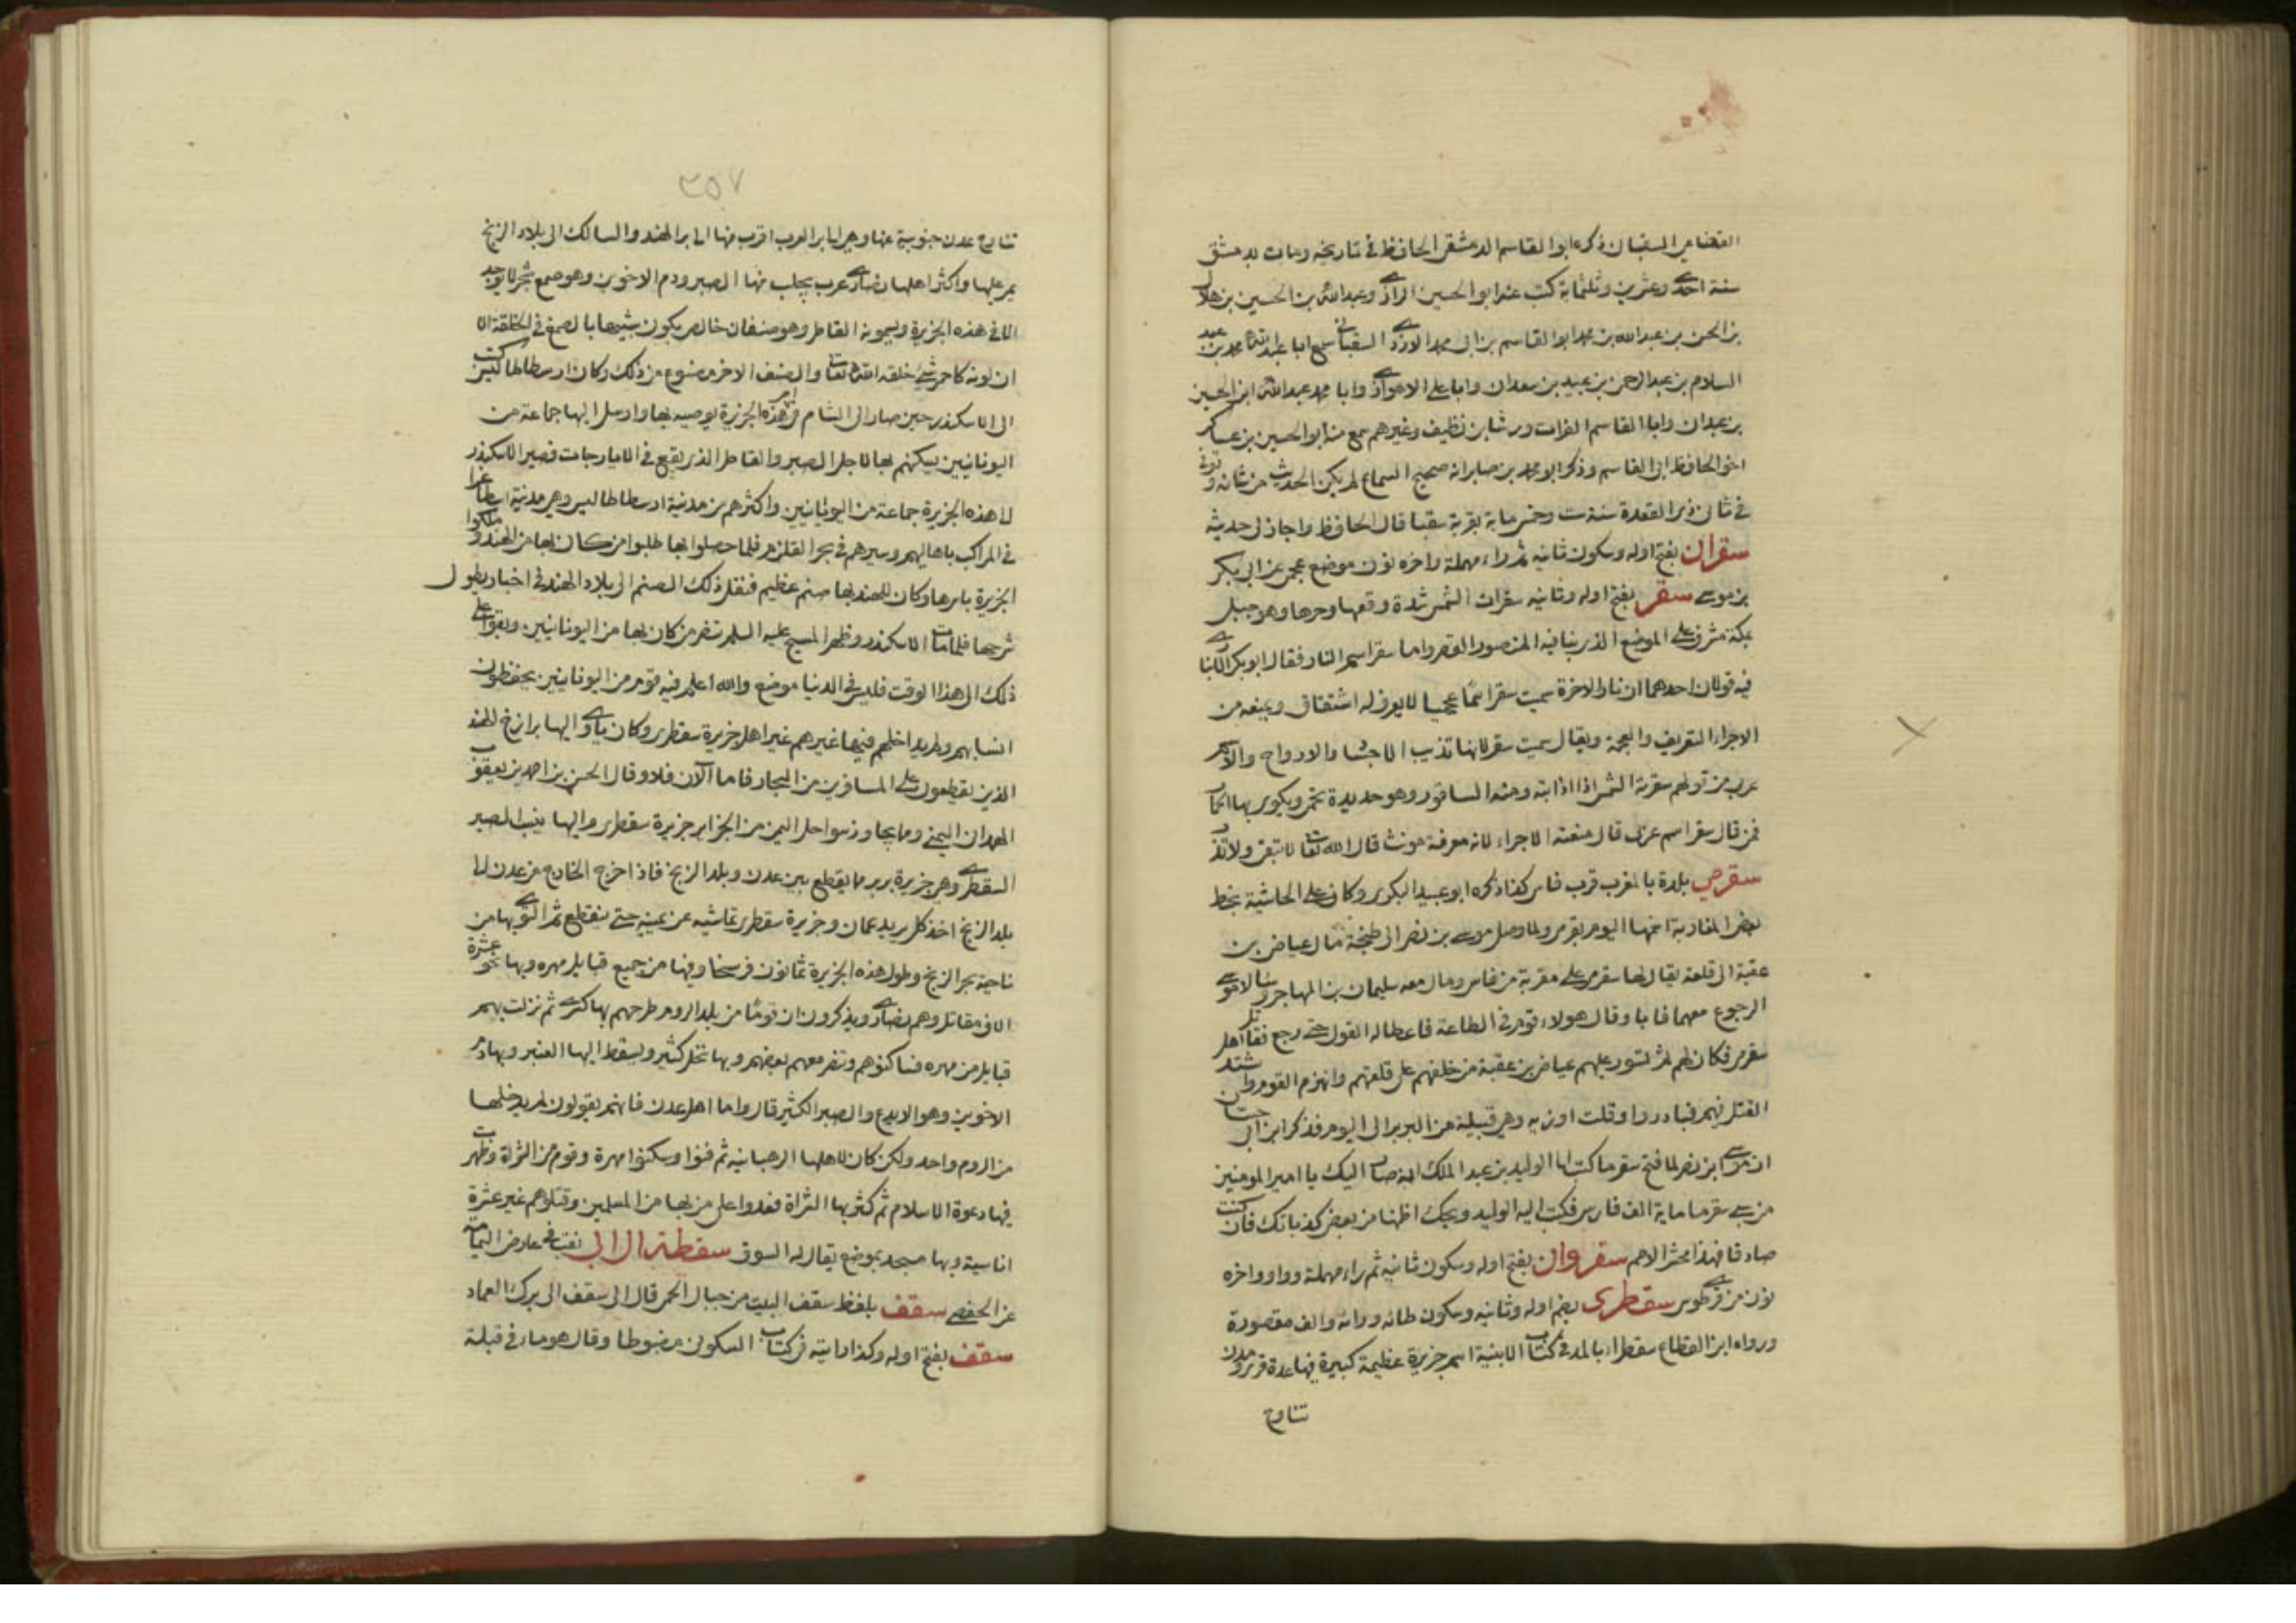 القضاعي السقباني ذكره ابو القاسم الدمشقي الحافظ في تاريخه ومات بدمشق
سنة احدى وعشرين وثلثماية كتب عنه ابو الحسين الرازي وعبد الله بن الحسين بن هلال
بن الحسن بن عبد الله بن محمد ابو القاسم بن ابي محمد الازدي السقباني سمع ابا عبد الله محمد بن عبد
السلام بن عبد الرحمن بن عبيد بن سعدان وابا علي الاهوازي وابا محمد عبد الله ابن الحسين
بن عبدان وابا القاسم الفرات ورشا بن نظيف وغيرهم سمع منه ابو الحسين بن عساكر
اخو الحافظ ابي القاسم وذكر ابو محمد بن صابر انه صحيح السماع لم يكن الحديث من شانه وتوفي
في ثاني ذي القعدة سنة ست وخمس ماية بقرية سقبا قال الحافظ واجاز لي حديثه
سقران بفتح اوله وسكون ثانيه ثم راء مهملة واخره نون موضع عجمي عن ابي بكر
بن موسى سقر بفتح اوله وثانيه سقرات الشمس شدة وقعها وحرها وهو جبل
بمكة مشرف على الموضع الذي بنا فيه المنصور القصر واما سقر اسم النار فقال ابو بكر الانباري
فيه قولان احدهما ان نار الاخرة سميت سقر اسما عجميا لا يعرف له اشتقاق ويمنعه من
الاجراء التعريف والعجمة ويقال سميت سقر لانها تذيب الاجسا والارواح والاسم
عربي من قولهم سقرته الشمس اذا اذابته ومنه الساقور وهو حديدة تحمى ويكوى بها الحمار
فمن قال سقر اسم عربي قال منعته الاجراء لانه معرفة مونث قال الله تعالى لا تبقى ولا تذر
سقرمى بلدة بالمغرب قرب فاس كذا ذكره ابو عبيد البكري وكان على الحاشية بخط
بعض المغاربة اسمها اليوم بقرمي ولما وصل موسى بن نصر الى طنجة مال عياض بن
عقبة الى قلعة يقال لها سقرمى على مقربة من فاس ومال معه سليمان بن المهاجر وسالا موسى
الرجوع معهما فابا وقال هولاء قوم في الطاعة فاعطاله القول حتى رجع فقاتل اهل
سقرمى فكان لهم ثم تسور عليهم عياض بن عقبة من خلفهم على قلعتهم وانهزم القوم واشتد
القتل فيهم فبادروا وقلت اوربه وهي قبيلة من البربر الى اليوم فذكر ابن ابي حسان
ان موسى ابن نصر لما فتح سقرما كتب الى الوليد بن عبد الملك انه صار اليك يا امير المومنين
من سبي سقرما ماية الف فارس فكتب اليه الوليد ويحك اظنها من بعض كذباتك فان كنت
صادقا فهذا محشر الامم سقروان بفتح اوله وسكون ثانيه ثم راء مهملة وواو واخره
نون من قرى طوس سقطرى بضم اوله وثانيه وسكون طائه ورائه والف مقصورة
ورواه ابن القطاع سقطراء بالمد في كتاب الابنية اسم جزيرة عظيمة كبيرة فيها عدة قرى ومدن
تناوح
٣٥٧
تناوح عدن جنوبية عنها وهي الى بر العرب اقرب منها الى بر الهند والسالك الى بلاد الزنج
يمر عليها واكثر اهلها نصارى عرب يجلب منها الصبر ودم الاخوين وهو صمغ شجر لا يوجد
الا في هذه الجزيرة ويسمونه القاطر وهو صنفان خالص يكون شبيها بالصمغ في الخلقة الا
ان لونه كاحمر شيء خلقه الله تعالى والصنف الاخر مصنوع من ذلك وكان ارسطاطاليس كتب
الى الاسكندر حين صار الى الشام في هذه الجزيرة يوصيه بها وارسل اليها جماعة من
اليونانيين يسكنهم بها لاجل الصبر والقاطر الذي يقع في الايارجات فصير الاسكندر
لا هذه الجزيرة جماعة من اليونانيين واكثرهم من مدينة ارسطاطاليس وهي مدينة اسطاغرا
في المراكب باهاليهم وسيرهم في بحر القلزم فلما حصلوا بها طلبوا من كان بها من الهند وملكوا
الجزيرة باسرها وكان للهند بها صنم عظيم فنقل ذلك الصنم الى بلاد الهند في اخبار يطول
شرحها فلما مات الاسكندر وظهر المسيح عليه السلم تنصر من كان بها من اليونانيين وبقوا على
ذلك الى هذا الوقت فليس في الدنيا موضع والله اعلم فيه قوم من اليونانيين يحفظون
انسابهم ولم يداخلهم فيها غيرهم غير اهل جزيرة سقطرى وكان ياوي اليها بوارج الهند
الذين يقطعون على المسافرين من التجار فاما الان فلا وقال الحسن بن احمد بن يعقوب
الهمداني اليمني ومما يجاور سواحل اليمن من الجزاير جزيرة سقطرى واليها ينسب الصبر
السقطري وهي جزيرة بربر مما يقطع بين عدن وبلد الزنج فاذا خرج الخارج من عدن الى
بلد الزنج اخذ كانه يريد عمان وجزيرة سقطرى تماشيه عن يمينه حتى ينقطع ثم التوى بها من
ناحية بحر الزنج وطول هذه الجزيرة ثمانون فرسخا وفيها من جميع قبايل مهره وبها نحو عشرة
الاف مقاتل وهم نصارى ويذكرون ان قوما من بلد الروم طرحهم بها كسرى ثم نزلت بهم
قبايل من مهره فساكنوهم وتنصر معهم بعضهم وبها نخل كثير ويسقط اليها العنبر وبها دم
الاخوين وهو الايدع والصبر الكثير قال واما اهل عدن فانهم يقولون لم يدخلها
من الروم واحد ولكن كان لاهلها الرهبانيه ثم فنوا وسكنوا مهرة وقوم من الشراة وظهرت
فيها دعوة الاسلام ثم كثر بها الشراة فعدوا على من بها من المسلمين وقتلوهم غير عشرة
اناسية وبها مسجد بموضع يقال له السوق سقطة ال ابي نقب في عارض اليمامة
عن الحفصي سقف بلفظ سقف البيت من جبال الحمى قال الى سقف الى برك الغماد
سقف بفتح اوله وكذا رايته في كتاب السكوني مضبوطا وقال هو مار في قبلة